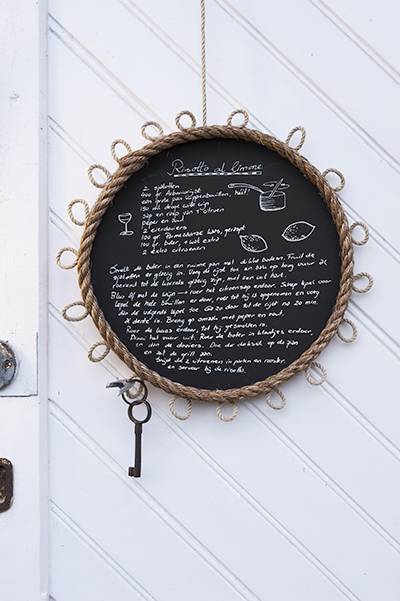 Risotto al limone
2 sjalotten
400 gr Arboriorijst
een grote pan kippenbouillon, heet!
150 ml droge witte wijn
sap en rasp van 1 citroen
peper en zout
2 eierdooiers
100 gr Parmezaanse kaas, geraspt
100 gr boter, + wat extra
2 extra citroenen
Smelt de boter in een ruime pan met dikke bodem. Fruit de
sjalotten er glazig in. Voeg de rijst toe en bak op hoog vuur al
roerend tot de korrels glazig zijn, met een wit hart.
Blus af met de wijn roer het citroensap erdoor. Schep lepel voor
lepel de hete bouillon er door, roer tot hij is opgenomen en voeg
dan de volgende lepel toe. Ga zo door tot de rijst na 20 min.
al dente is. Breng op smaak met peper en zout.
Roer de kaas erdoor, tot hij gesmolten is.
Draai het vuur uit. Roer de boter in klontjes erdoor,
en dan de dooiers. Doe de deksel op de pan
en zet de grill aan.
Snijd de 2 citroenen in parten en rooster
en serveer bij de risotto.